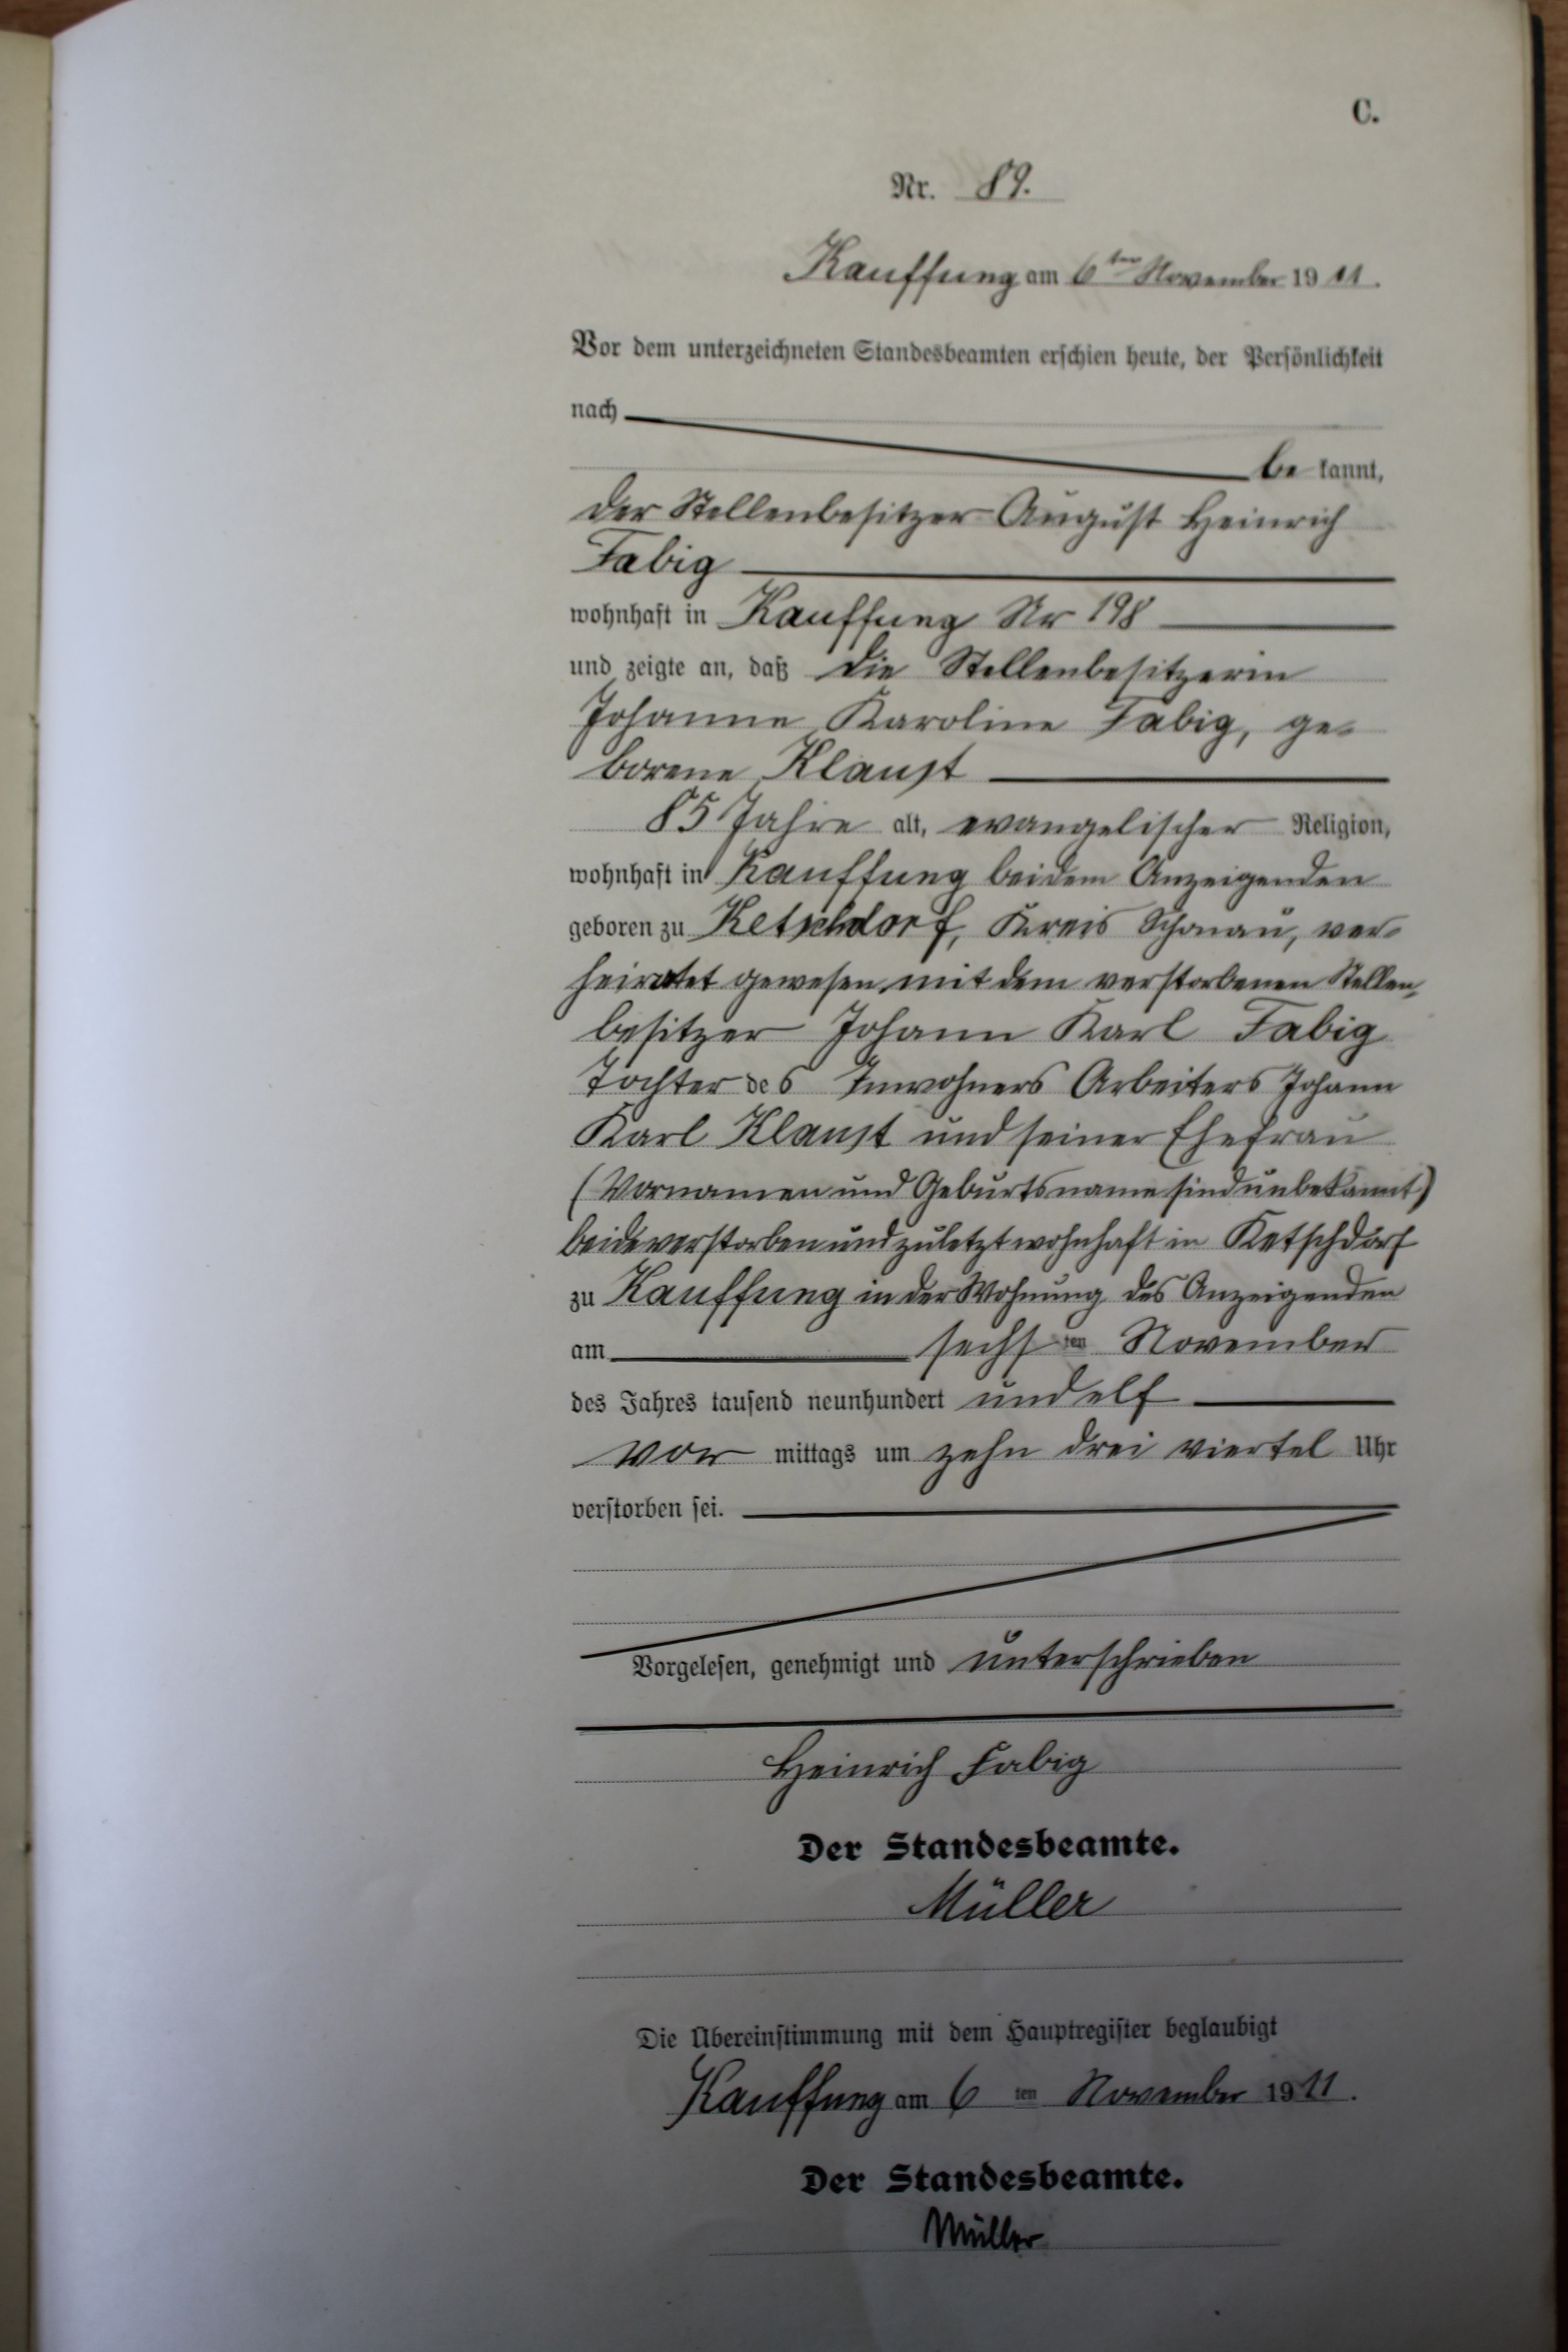 C.
Nr. 89.
Kauffung am 6ten November 1911.
Vor dem unterzeichneten Standesbeamten erschien heute, der Persönlichkeit
nach
be kannt,
der Stellenbesitzer August Heinrich
Fabig
wohnhaft in Kauffung Nr 198
und zeigte an, daß die Stellenbesitzerin
Johanne Karoline Fabig, ge-
borene Klaust
85 Jahre alt, evangelischer Religion,
wohnhaft in Kauffung bei dem Anzeigenden
geboren zu Ketschdorf, Kreis Schönau, ver-
heiratet gewesen mit dem verstorbenen Stellen-
besitzer Johann Karl Fabig
Tochter des Inwohners Arbeiters Johann
Karl Klaust und seiner Ehefrau
(Vornamen und Geburtsname sind unbekannt)
beide verstorben und zuletzt wohnhaft in Ketschdorf
zu Kauffung in der Wohnung des Anzeigenden
am sechsten November
des Jahres tausend neunhundert und elf
vor mittags um zehn drei viertel Uhr
verstorben sei.
Vorgelesen, genehmigt und unterschrieben
Heinrich Fabig
Der Standesbeamte.
Müller
Die Übereinstimmung mit dem Hauptregister beglaubigt
Kauffung am 6 ten November 1911.
Der Standesbeamte.
Müller